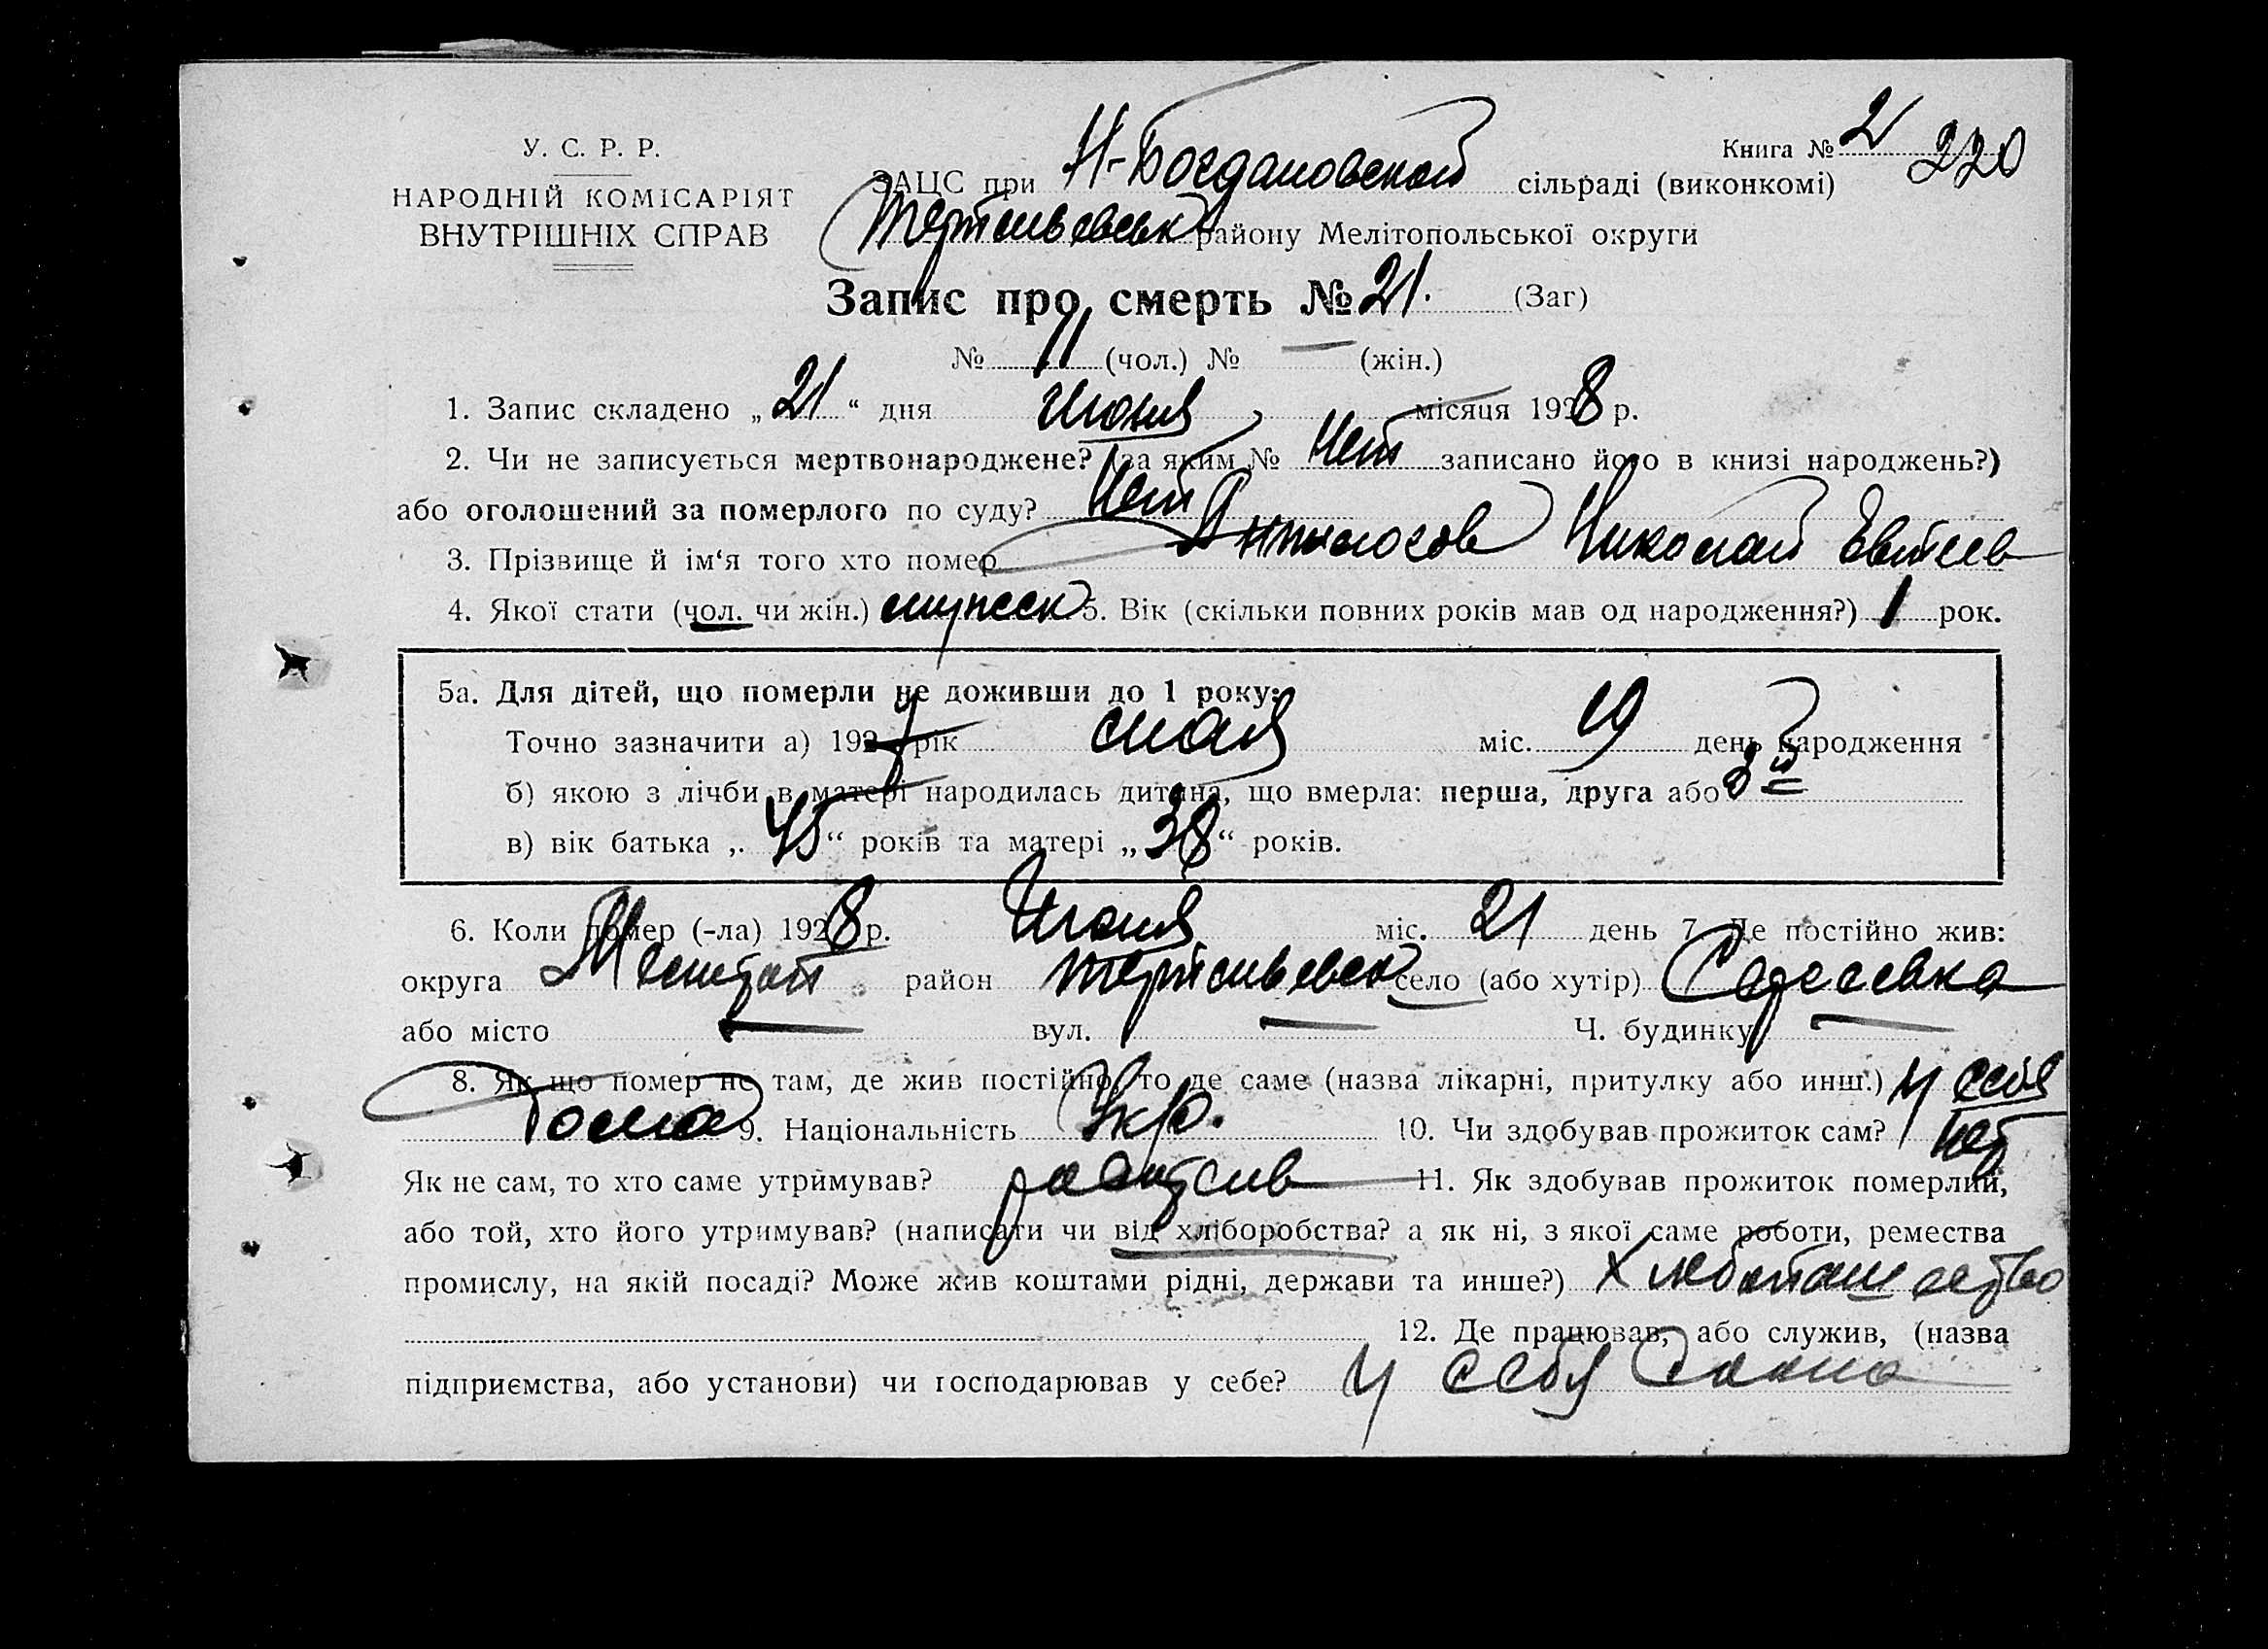 У. С. Р. Р.
НАРОДНІЙ КОМІСАРІЯТ
ВНУТРІШНІХ СПРАВ
Книга № 2 220
ЗАЦС при Н-Богдановской сільраді (виконкомі)
району Мелітопольської округи
Запис про смерть № 21. (Заг)
№ 11 (чол.) № — (жін.)
1. Запис складено „21“ дня Июня місяця 1928 р.
2. Чи не записується мертвонароджене? (за яким № Нет записано його в книзі народжень?)
або оголошений за померлого по суду? Нет
3. Прізвище й ім‘я того хто помер Николай
4. Якої стати (чол. чи жін.) мужеск 5. Вік (скільки повних років мав од народження?) 1 рок.
5а. Для дітей, що померли не доживши до 1 року:
Точно зазначити а) 1927 рік мая міс. 19 день народження
б) якою з лічби в матері народилась дитина, що вмерла: перша, друга або 3й
в) вік батька „45“ років та матері „38“ років.
6. Коли помер (-ла) 1928 р. Июня міс. 21 день 7. Де постійно жив:
округа район село (або хутір)
або місто — вул. — Ч. будинку —
8. Як що помер не там, де жив постійно, то де саме (назва лікарні, притулку або инш.) у себя
дома 9. Національність Укр. 10. Чи здобував прожиток сам? нет
Як не сам, то хто саме утримував? 11. Як здобував прожиток померлий,
або той, хто його утримував? (написати чи від хліборобства? а як ні, з якої саме роботи, ремества
промислу, на якій посаді? Може жив коштами рідні, держави та инше?)
12. Де працював, або служив, (назва
підприємства, або установи) чи господарював у себе? у себя дома